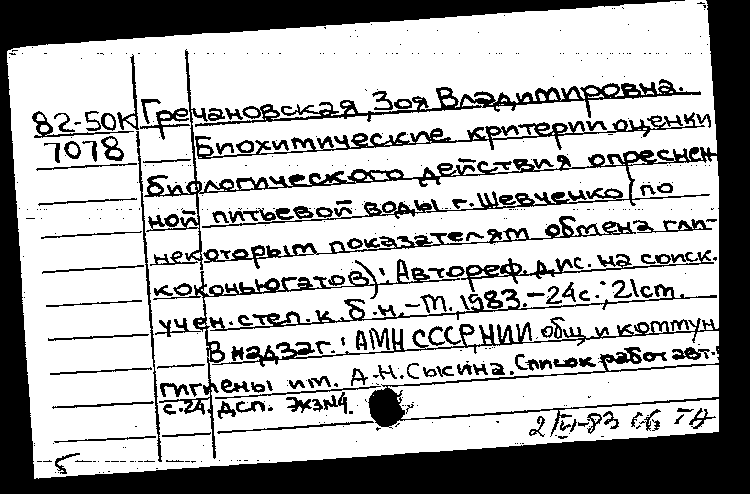 82-50К
7078
Гречановская, Зоя Владимировна.
Биохимические критерии оценки
биологического действия опреснен
ной питьевой воды г. Шевченко (по
некоторым показателям обмена гли-
коконьюгатов): Автореф. дис. на соиск.
учен. степ. к. б. н. - М., 1983. - 24 с.; 21 см.
В надзаг.: АМН СССР, НИИ общ. и коммун
гигиены им. А.Н. Сысина. Список работ авт.:
с. 24. ДСП. Экз №4.